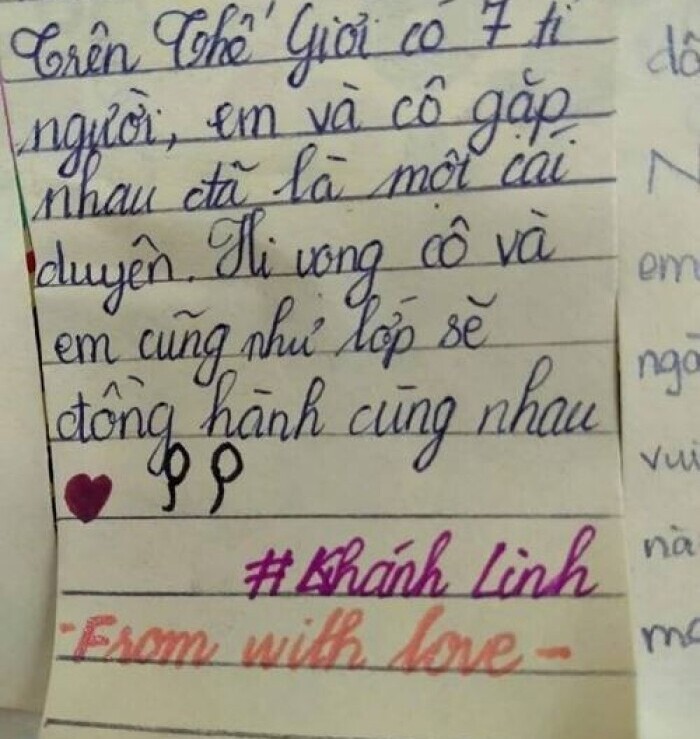 Trên Thế Giới có 7 tỉ
người, em và cô gặp
nhau đã là một cái
duyên. Hi vọng cô và
em cũng như lớp sẽ
đồng hành cùng nhau
#Khánh Linh
-From with love-
dô
N
em
ngà
vui
nà